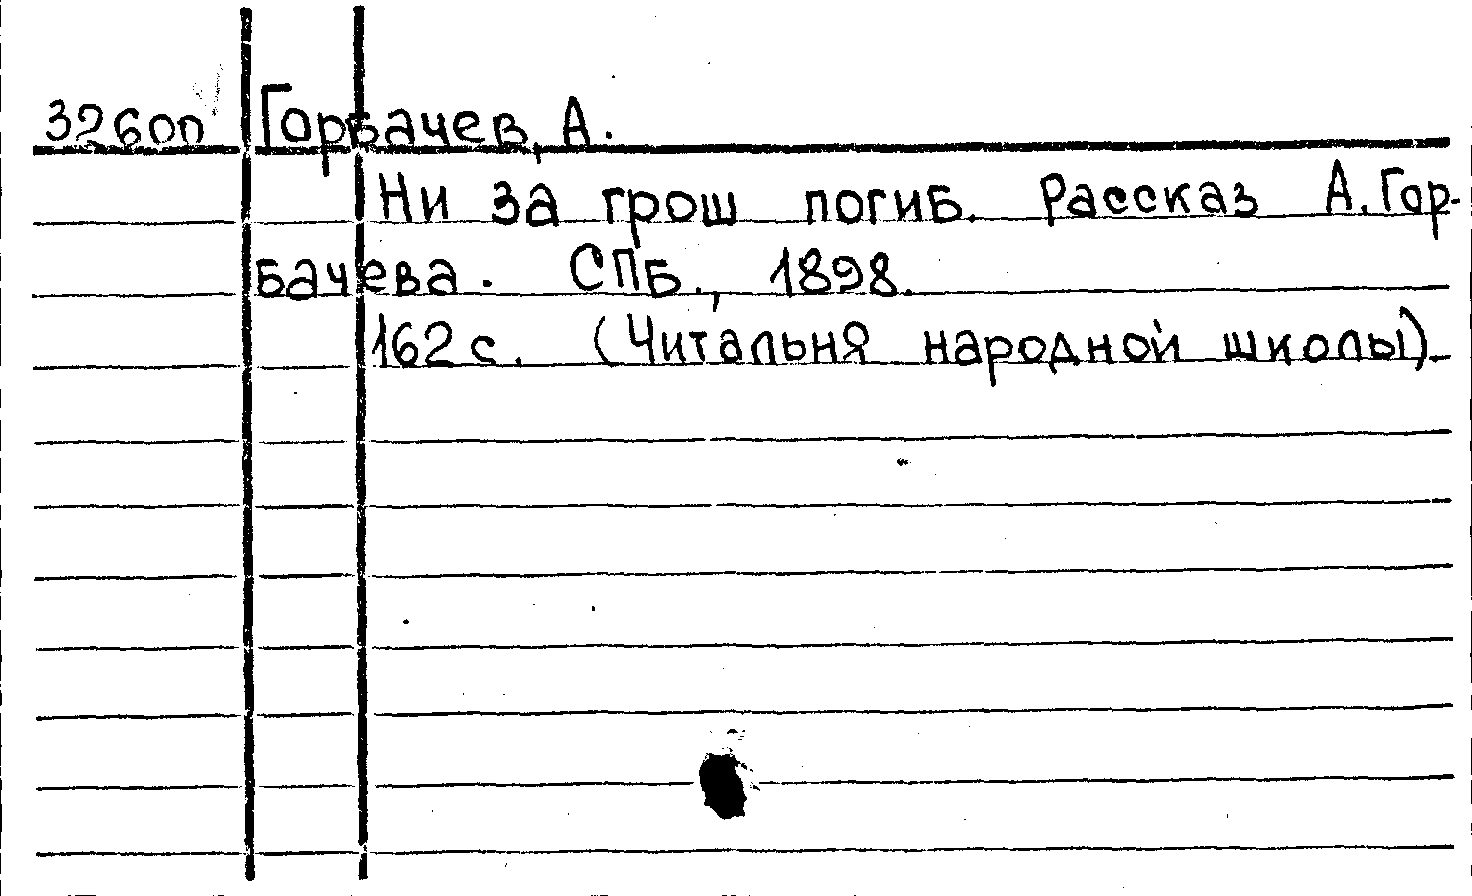 32600 Горбачев, А.
Ни за грош погиб. Рассказ А. Гор-
бачева. СПБ., 1898.
162 с. (Читальня народной школы).